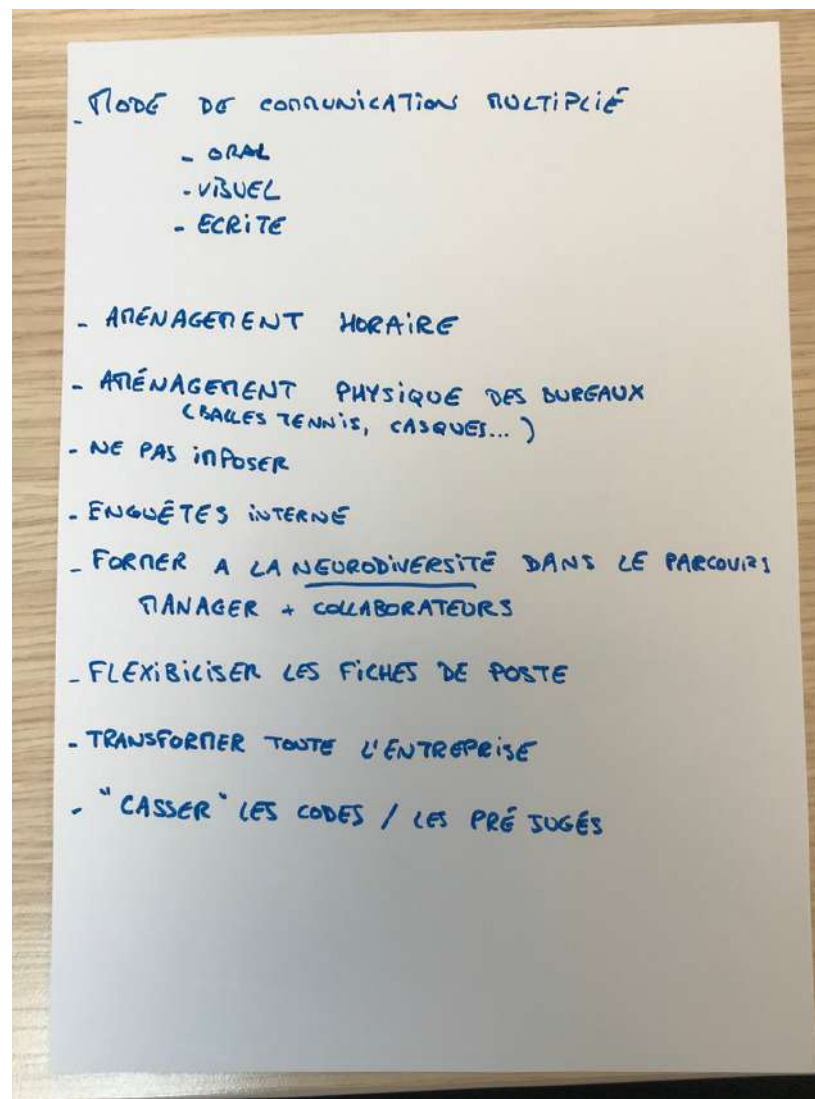 - MODE DE COMMUNICATION MULTIPLIÉ
- ORAL
- VISUEL
- ECRITE
- AMÉNAGEMENT HORAIRE
- AMÉNAGEMENT PHYSIQUE DES BUREAUX
(BALLES TENNIS, CASQUES...)
- NE PAS IMPOSER
- ENQUÊTES INTERNE
- FORMER A LA NEURODIVERSITÉ DANS LE PARCOURS
MANAGER + COLLABORATEURS
- FLEXIBILISER LES FICHES DE POSTE
- TRANSFORMER TOUTE L'ENTREPRISE
- "CASSER" LES CODES / LES PRÉ JUGÉS